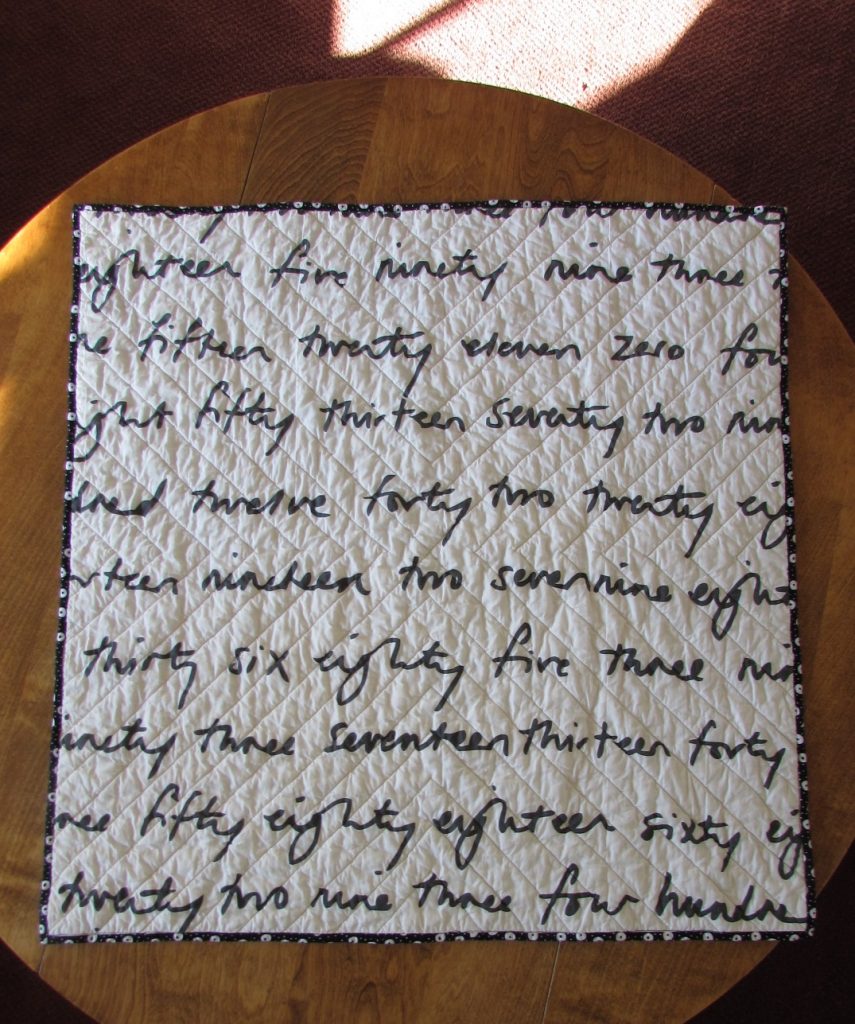 eighteen five ninety nine three
fifteen twenty eleven zero fou
ight fifty thirteen seventy two nin
dred twelve forty two twenty eig
rteen nineteen two seven nine eight
thirty six eighty five three nin
inety three seventeen thirteen forty
ree fifty eighty eighteen sixty eig
twenty two nine three four hundre